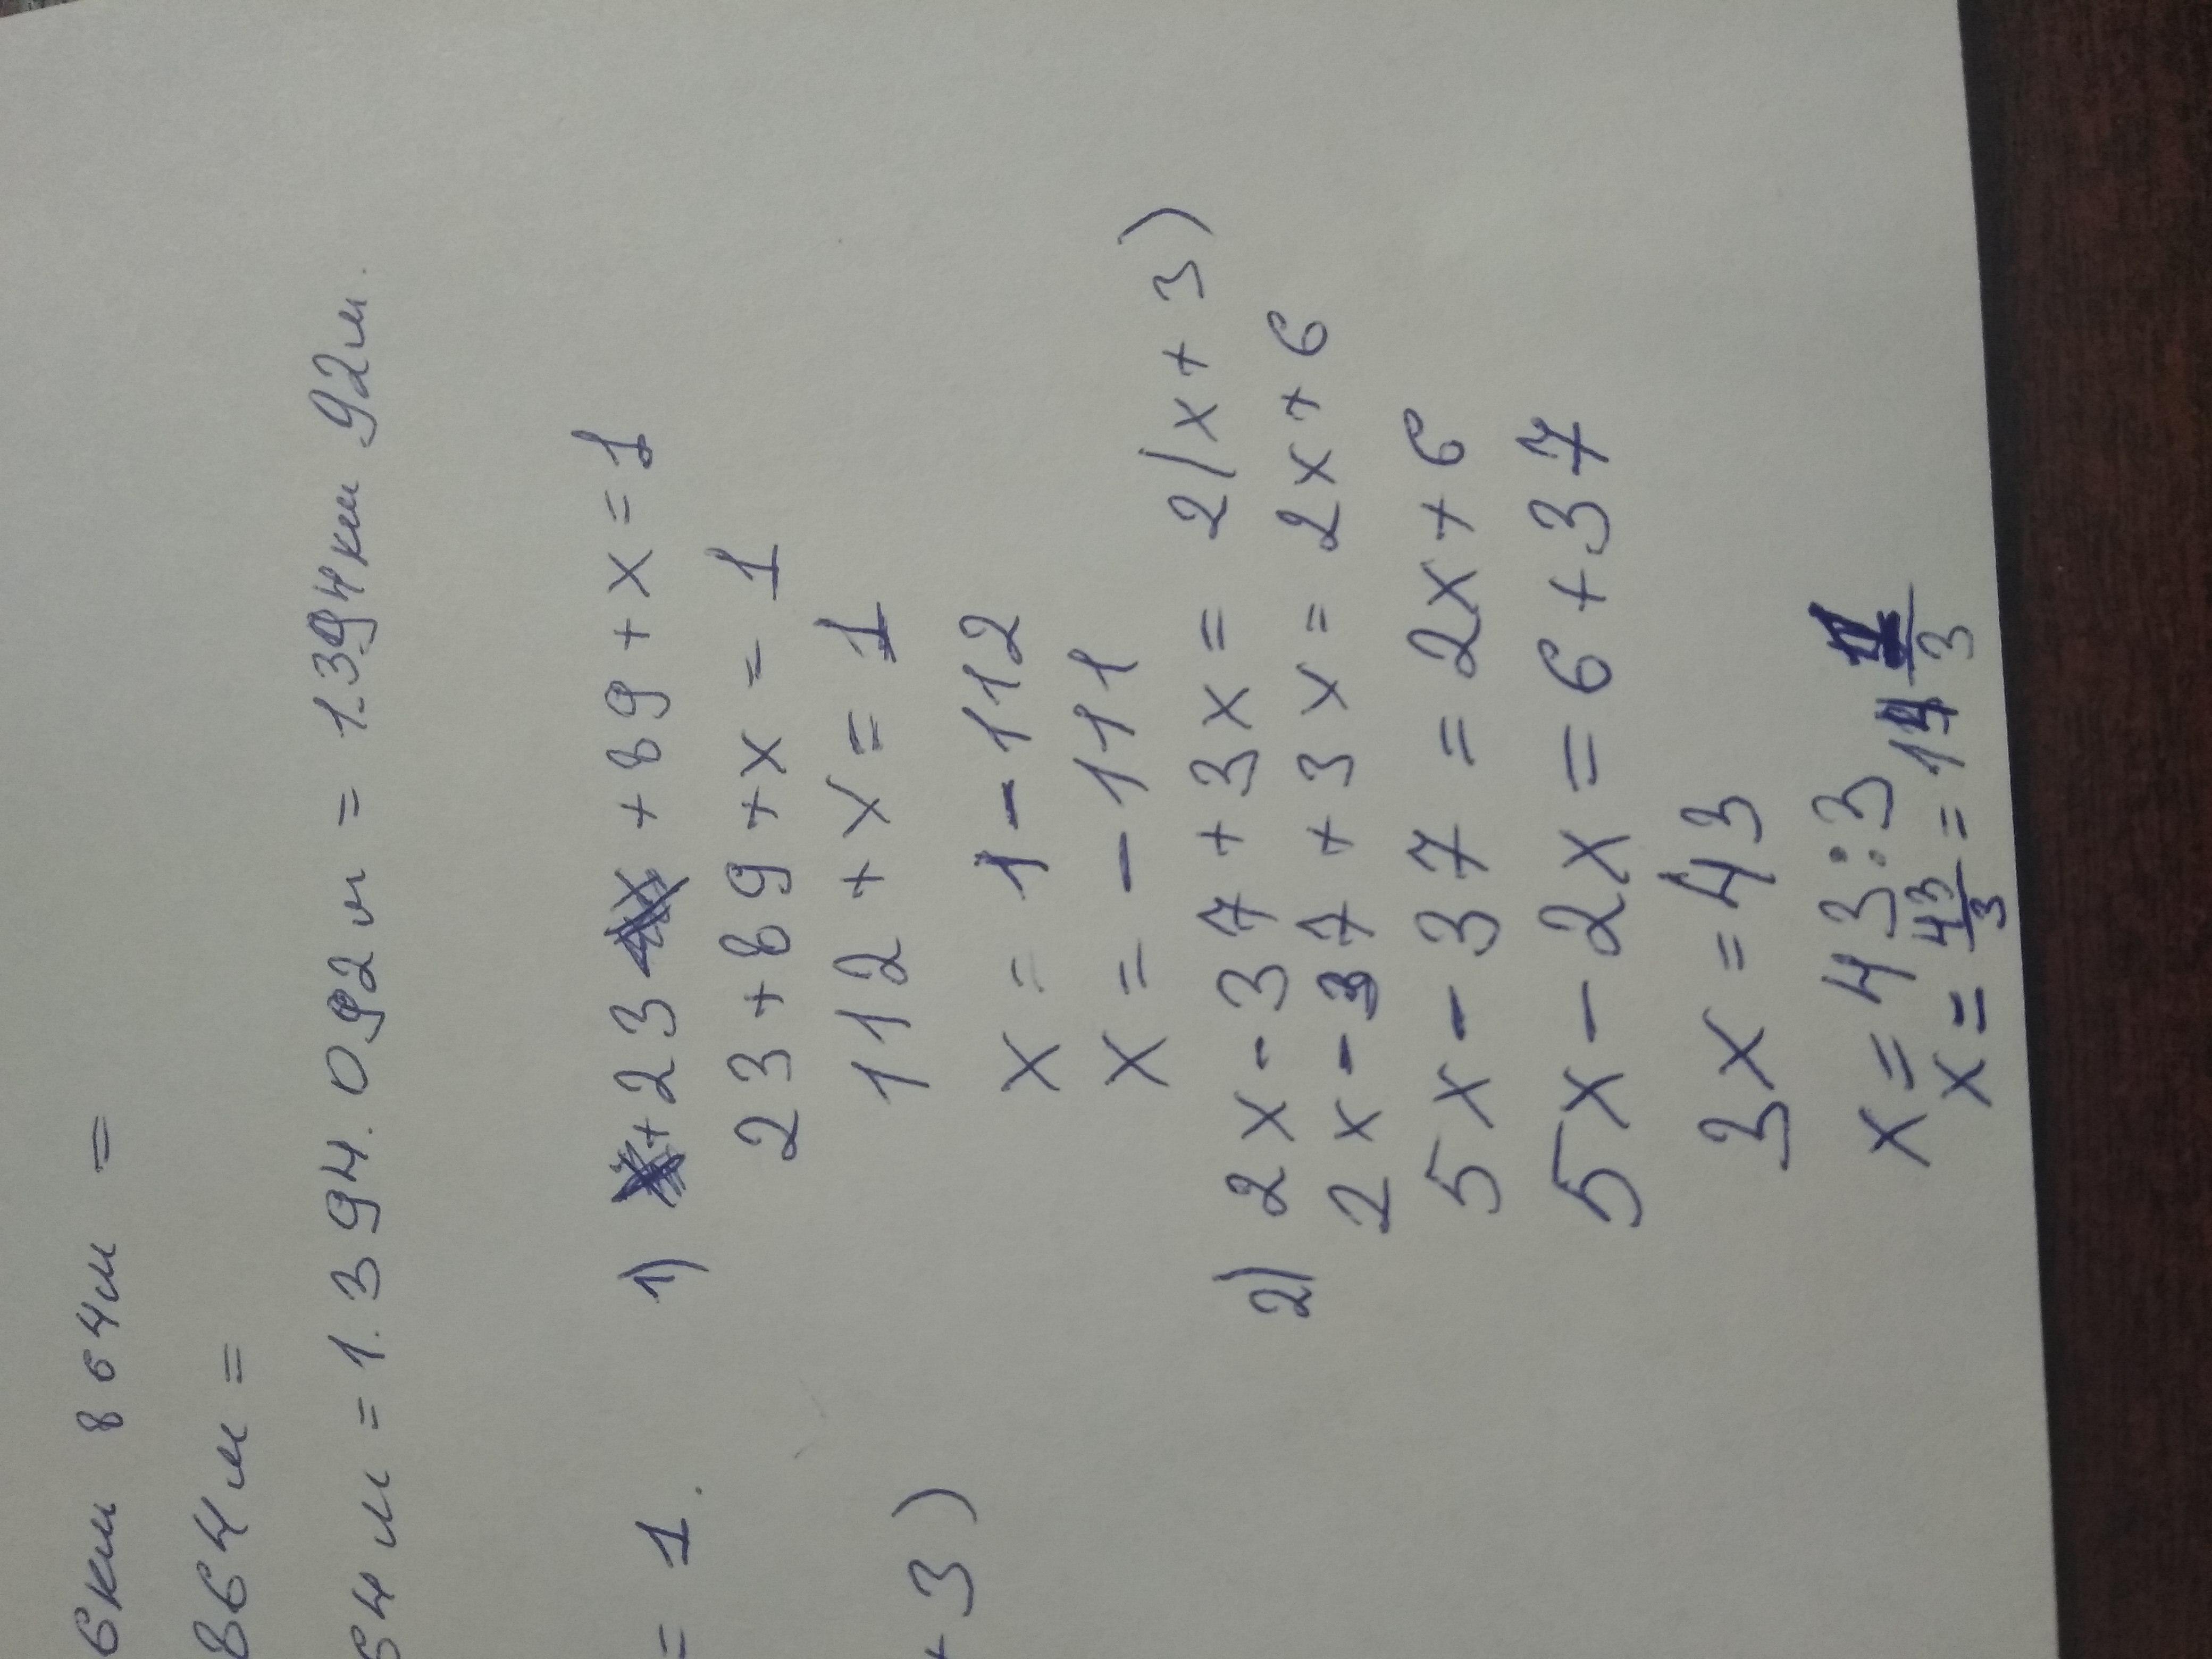 6км 864м =
864м =
64м = 1.394.092м = 1.394км 92м.
= 1.
+ 3)
1) +23 + 89 + x = 1
23 + 89 + x = 1
112 + x = 1
x = 1 - 112
x = - 111
2) 2x - 37 + 3x = 2(x + 3)
2x - 37 + 3x = 2x + 6
5x - 37 = 2x + 6
5x - 2x = 6 + 37
3x = 43
x = 43 : 3
x = 43/3 = 14 1/3